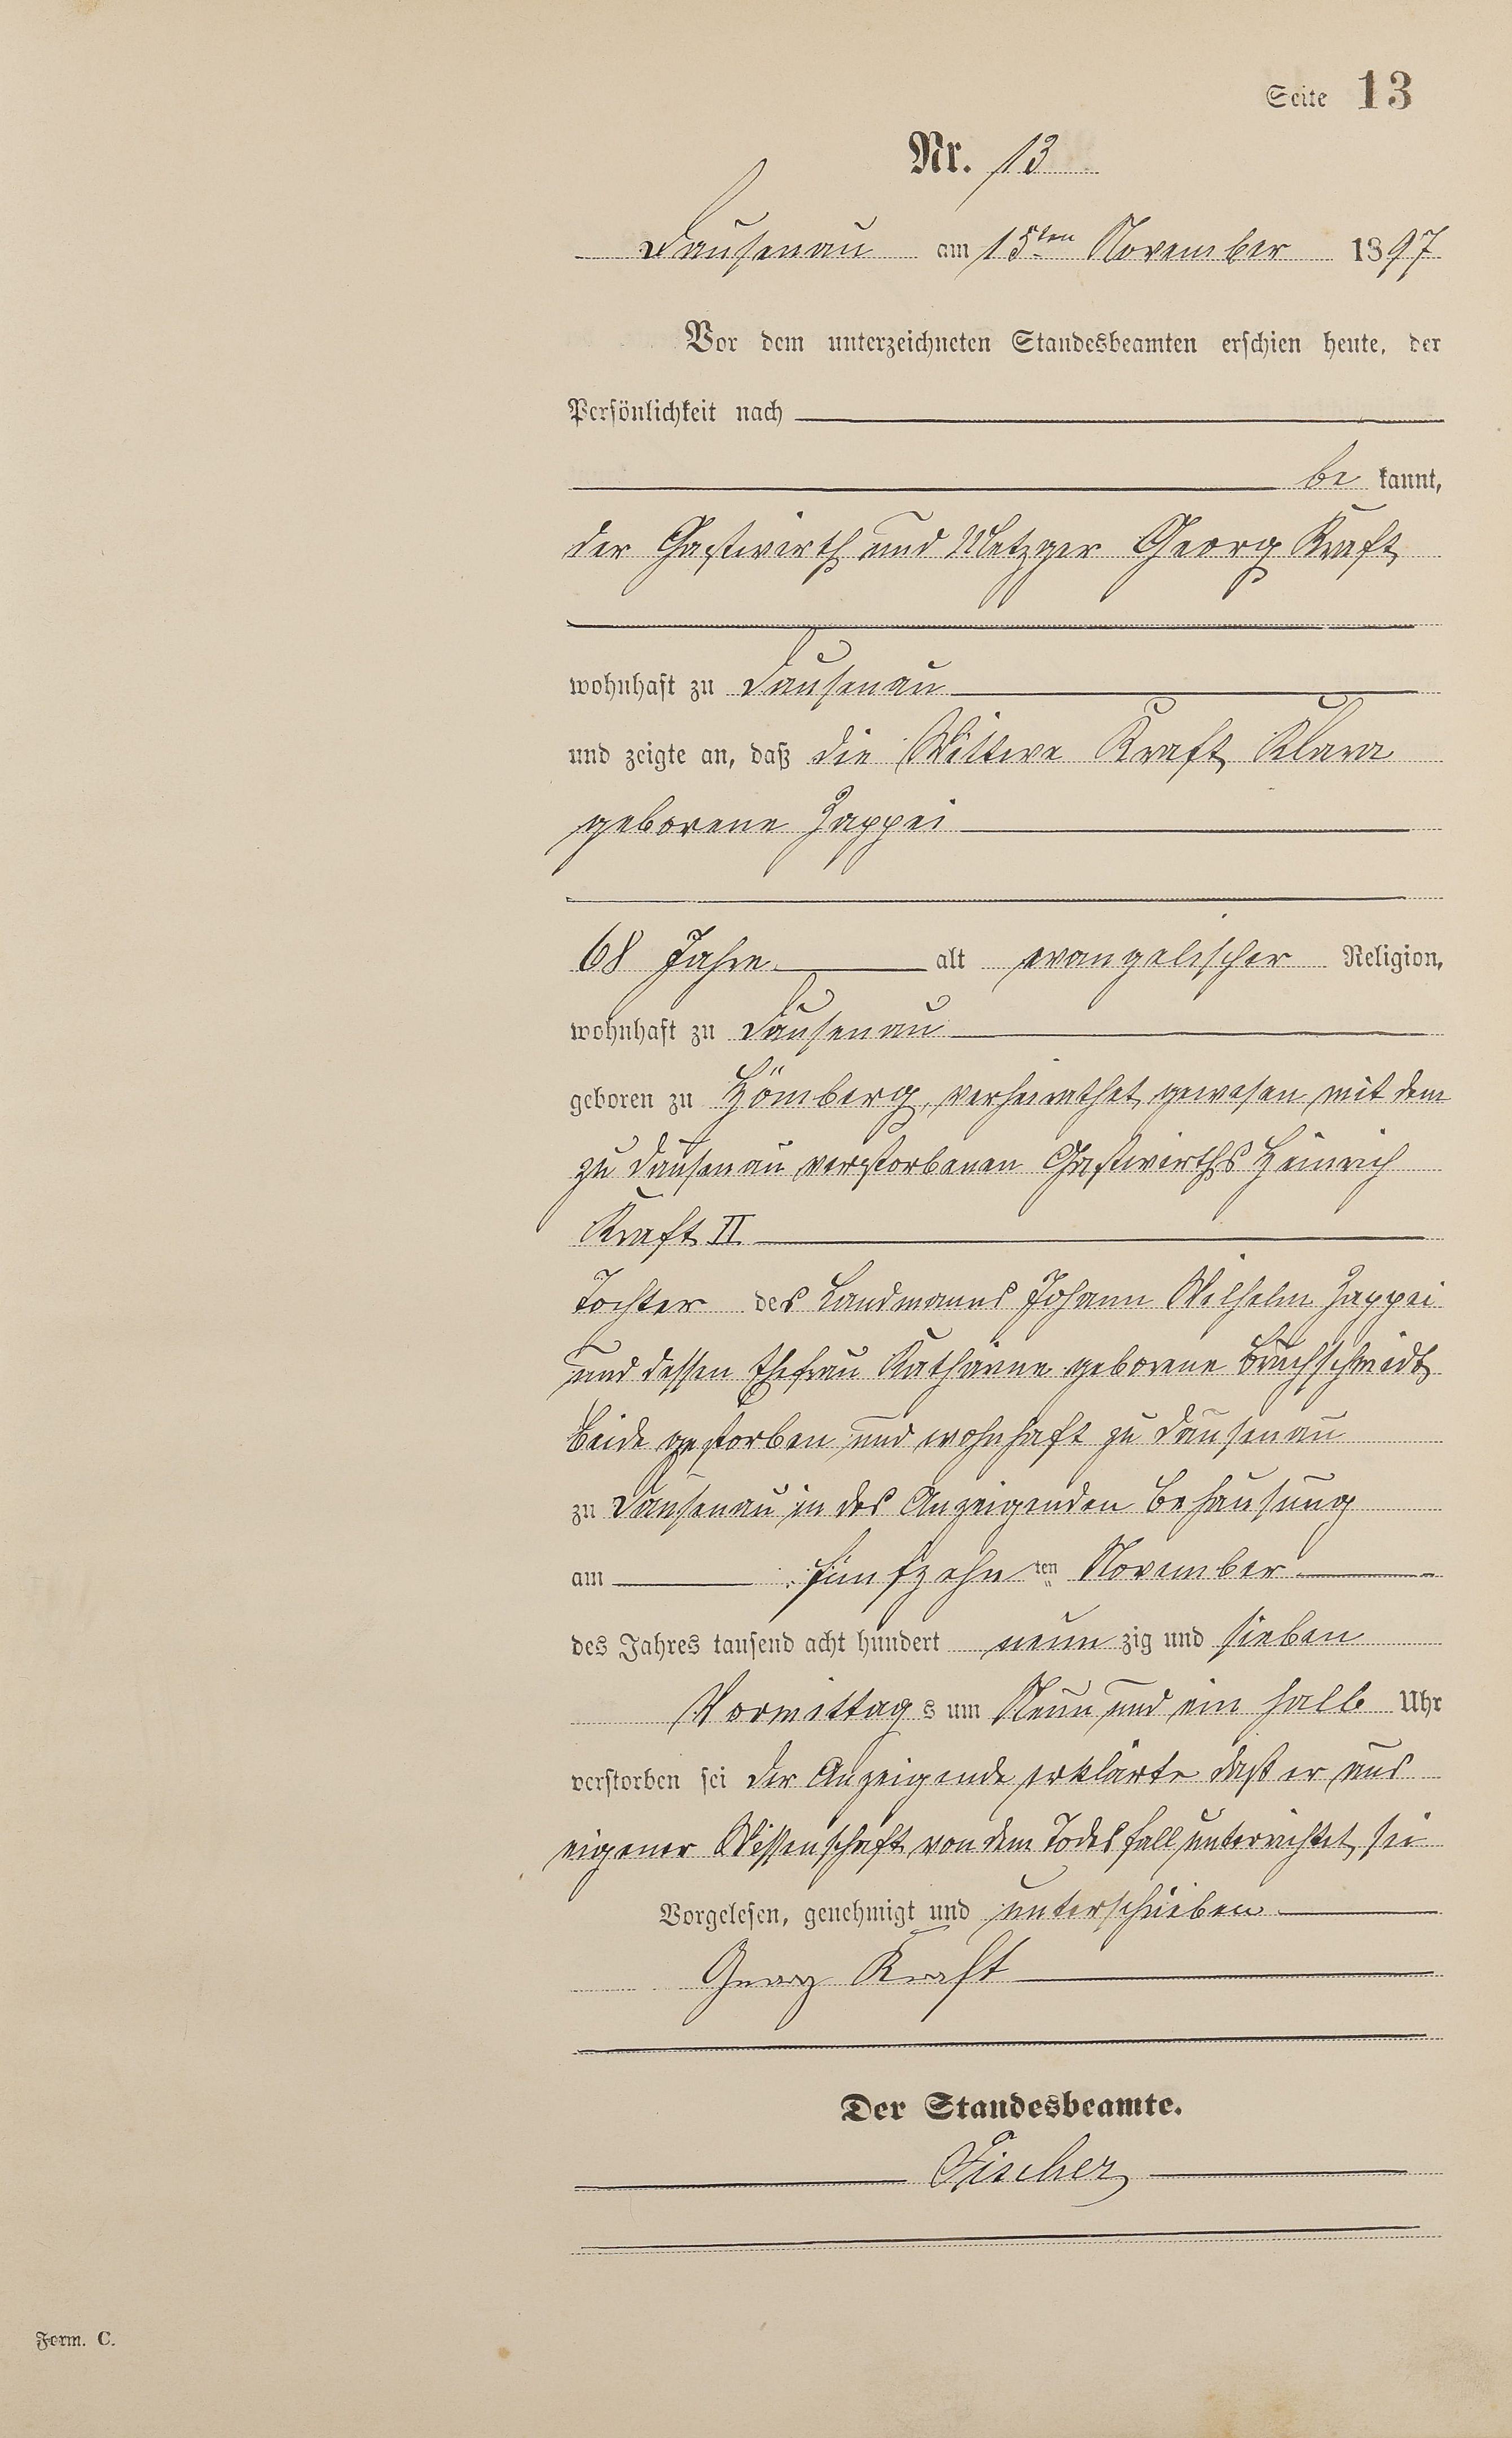 Seite 13
Nr. 13
Dausenau am 15ten November 1897
Vor dem unterzeichneten Standesbeamten erschien heute, der
Persönlichkeit nach
be kannt,
der Gastwirth und Metzger Georg Kraft
wohnhaft zu Dausenau
und zeigte an, daß die Wittwe Kraft Klara
geborene Zappei
68 Jahre alt evangelischer Religion,
wohnhaft zu Dausenau
geboren zu Hömberg, verheirathet gewesen mit dem
zu Dausenau verstorbenen Gastwirths Heinrich
Kraft II
Tochter des Landmanns Johann Wilhelm Zappei
und dessen Ehefrau Katharine geborene Bruchschmidt
beide gestorben und wohnhaft zu Dausenau
zu Dausenau in des Anzeigenden Behausung
am fünfzehn ten November
des Jahres tausend acht hundert neun zig und sieben
Vormittag s um Neun und ein halb Uhr
verstorben sei der Anzeigende erklärte daß er aus
eigener Wissenschaft von dem Todesfall unterrichtet sei
Vorgelesen, genehmigt und unterschrieben
Georg Kraft
Der Standesbeamte.
Fischer
Form. C.